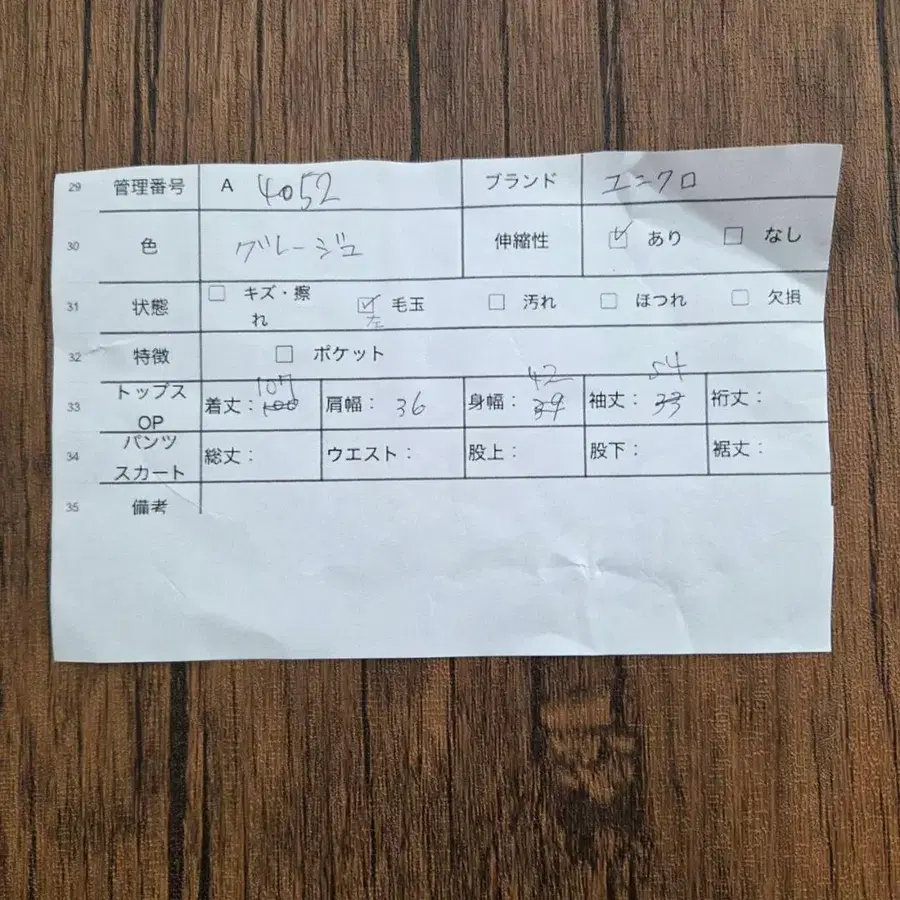 29 管理番号 A 4052 ブランド ユニクロ
30 色 グレージュ 伸縮性 ☑ あり ☐ なし
31 状態 ☐ キズ・擦れ ☑ 毛玉 ☐ 汚れ ☐ ほつれ ☐ 欠損
左
32 特徴 ☐ ポケット
107 42 54
33 トップス OP 着丈: 100 肩幅: 36 身幅: 39 袖丈: 33 裄丈:
34 パンツ スカート 総丈: ウエスト: 股上: 股下: 裾丈:
35 備考